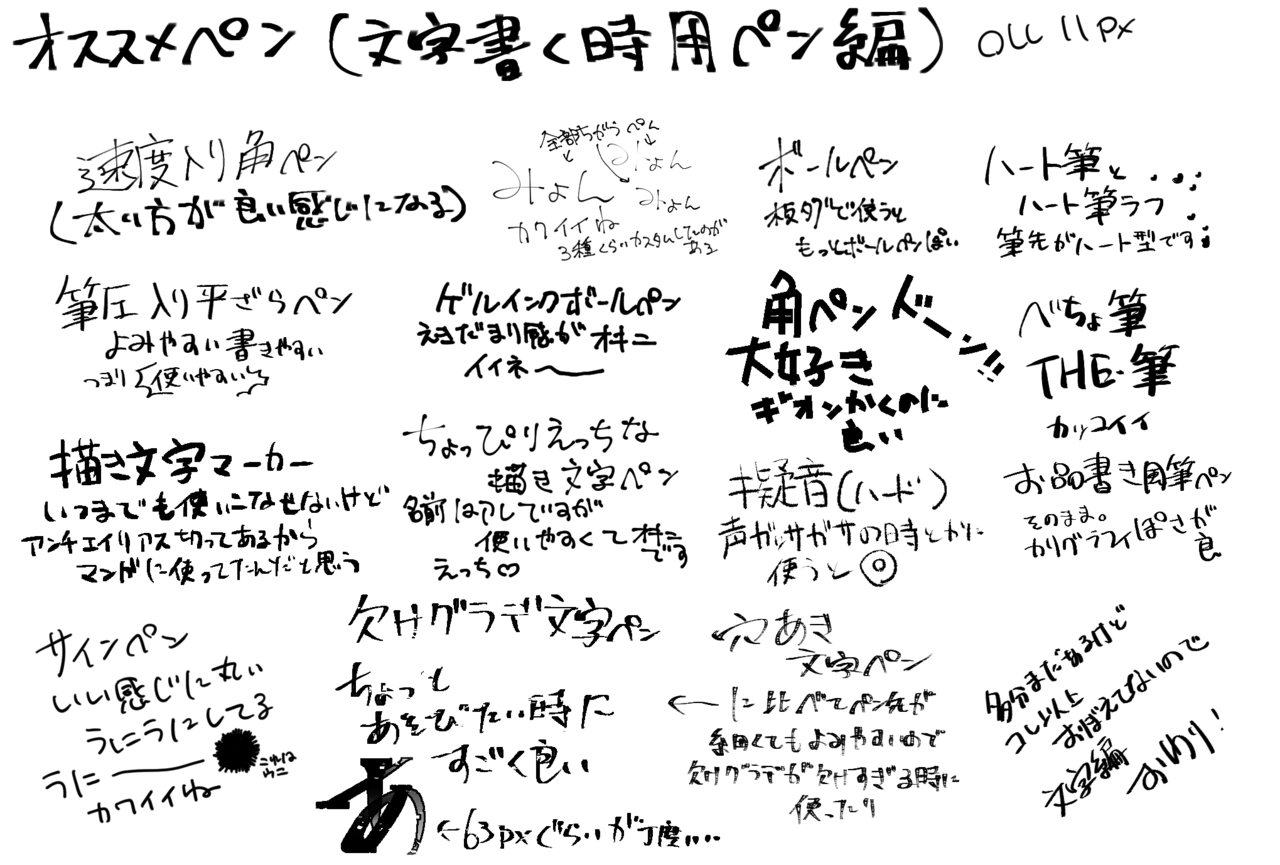 オススメペン(文字書く時用ペン編) all 11px
速度入り角ペン
(太い方が良い感じになる)
全部ちがうペん
みょん
みょん
みょん
カワイイね
3種くらいカスタムしてるのが
ある
ボールペン
板タブで使うと
もっとボールペンぽい
ハート筆と
ハート筆ラフ
筆先がハート型です
筆圧入り平ざらペン
よみやすい書きやすい
つまり使いやすい
ゲルインクボールペン
えきだまり感がオキニ
イイネ〜
角ペンドーン!!
大好き
ギオンかくのに
良い
べちょ筆
THE・筆
カッコイイ
描き文字マーカー
いつまでも使いこなせないけど
アンチエイリアス切ってあるから
マンガに使ってたんだと思う
ちょっぴりえっちな
描き文字ペン
名前はアレしていますが
使いやすくてオキニ
です
えっち♡
擬音(ハード)
声がガサガサの時とかに
使うと◎
お品書き用筆ペン
そのまま。
カリグラフィぽさが
良
サインペン
いい感じに丸い
うにうにしてる
うに
これは
ウニ
カワイイね
欠けグラデ文字ペン
ちょっと
あそびたい時に
すごく良い
あ
←63pxぐらいが丁度....
穴あき
文字ペン
←に比べてペン先が
細くてもよみやすいので
欠けグラデが欠けすぎる時に
使ったり
多分まだあるけど
コレ以上
おぼえてないので
文字編
おわり!